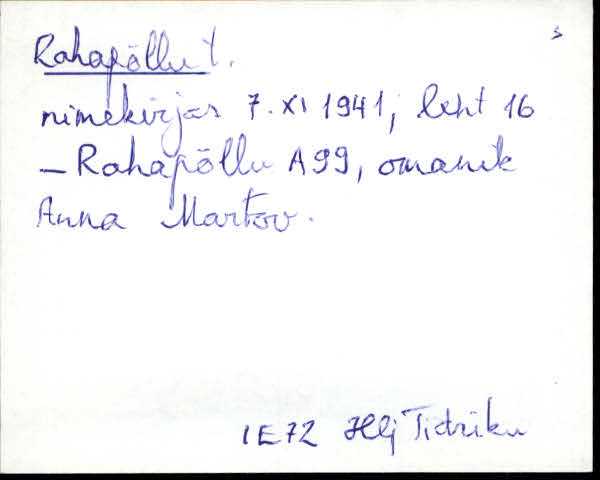 Rahapõllu t.
3
nimekirjas 7. XI 1941, leht 16
– Rahapõllu A99, omanik
Anna Martov.
IE72 Hlj Tidriku